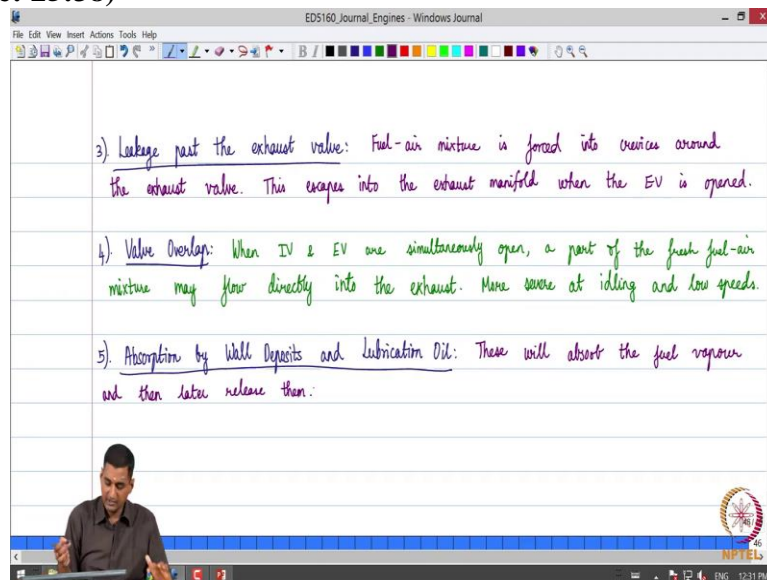 ED5160_Journal_Engines - Windows Journal
File Edit View Insert Actions Tools Help
3). Leakage past the exhaust valve: Fuel-air mixture is forced into crevices around
the exhaust valve. This escapes into the exhaust manifold when the EV is opened.
4). Valve Overlap: When IV & EV are simultaneously open, a part of the fresh fuel-air
mixture may flow directly into the exhaust. More severe at idling and low speeds.
5). Absorption by Wall Deposits and Lubrication Oil: These will absorb the fuel vapour
and then later release them.
46
NPTEL
ENG 12:31 PM